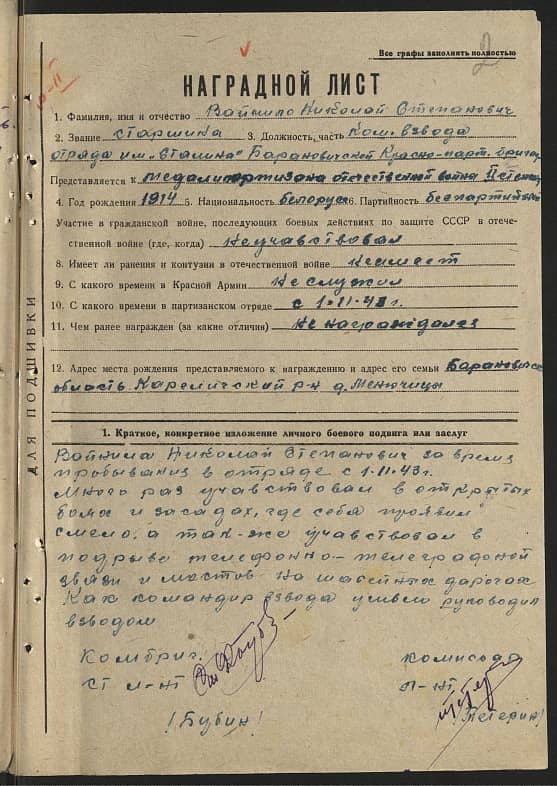 2
Все графы заполнять полностью
НАГРАДНОЙ ЛИСТ
1. Фамилия, имя и отчество Войнило Николай Степанович
2. Звание старшина 3. Должность, часть Ком. взвода
отряда им „Сталина" Барановичской Красно-парт. бригад
Представляется к медали партизана отечественной войны II степени
4. Год рождения 1914 5. Национальность белорус 6. Партийность беспартийный
Участие в гражданской войне, последующих боевых действиях по защите СССР в отече-
ственной войне (где, когда) не учавствовал
8. Имеет ли ранения и контузии в отечественной войне не имеет
9. С какого времени в Красной Армии не служил
10. С какого времени в партизанском отряде с 1-11-43 г.
11. Чем ранее награжден (за какие отличия) не награждался
12. Адрес места рождения представляемого к награждению и адрес его семьи Барановичск
область Кареличский р-н д.
ДЛЯ ПОДШИВКИ
1. Краткое, конкретное изложение личного боевого подвига или заслуг
Николай Степанович за время
пробывания в отряде с 1-11-43 г.
много раз учавствовал в открытых
боях и засадах, где себя проявил
смело, а так-же учавствовал в
подрыве телефонно-телеграфной
связи и мостов на шасейных дорогах
Как командир взвода умело руководил
взводом
Комбриг.
Ст л-нт
(Бубин)
комиссар
л-нт